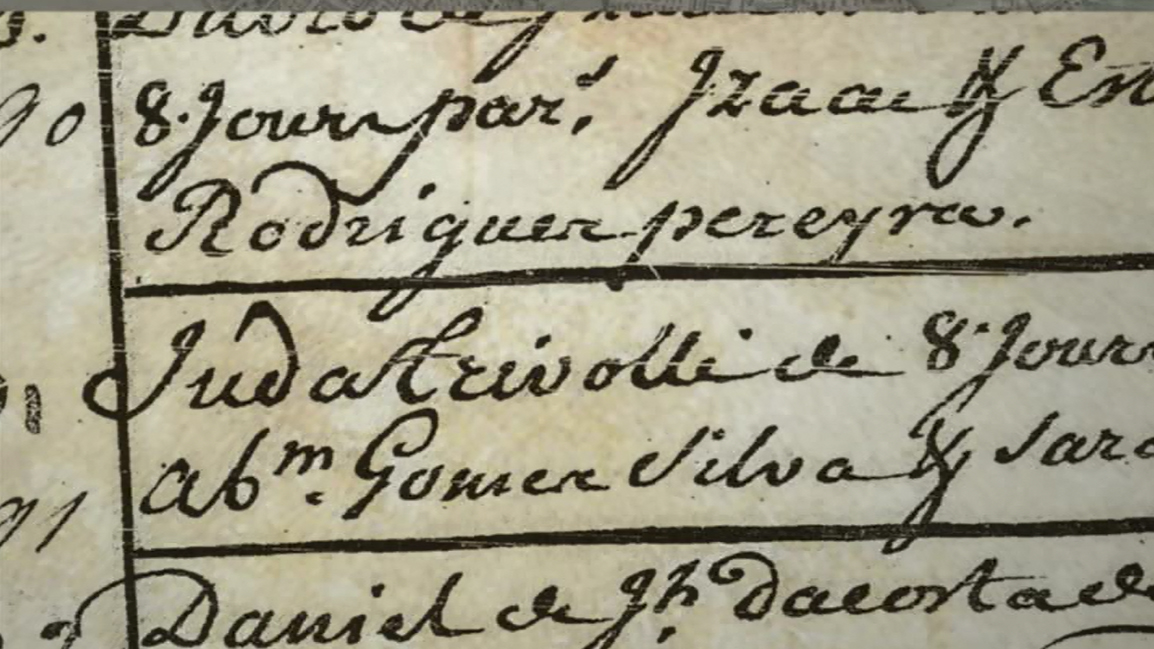 90 8. Jours par.s Izaac & Est
Rodriguez pereyra.
Juda trivolli de 8. Jours
91 abm. Gomez Silva & Sara
Daniel de Jh. Dacosta de